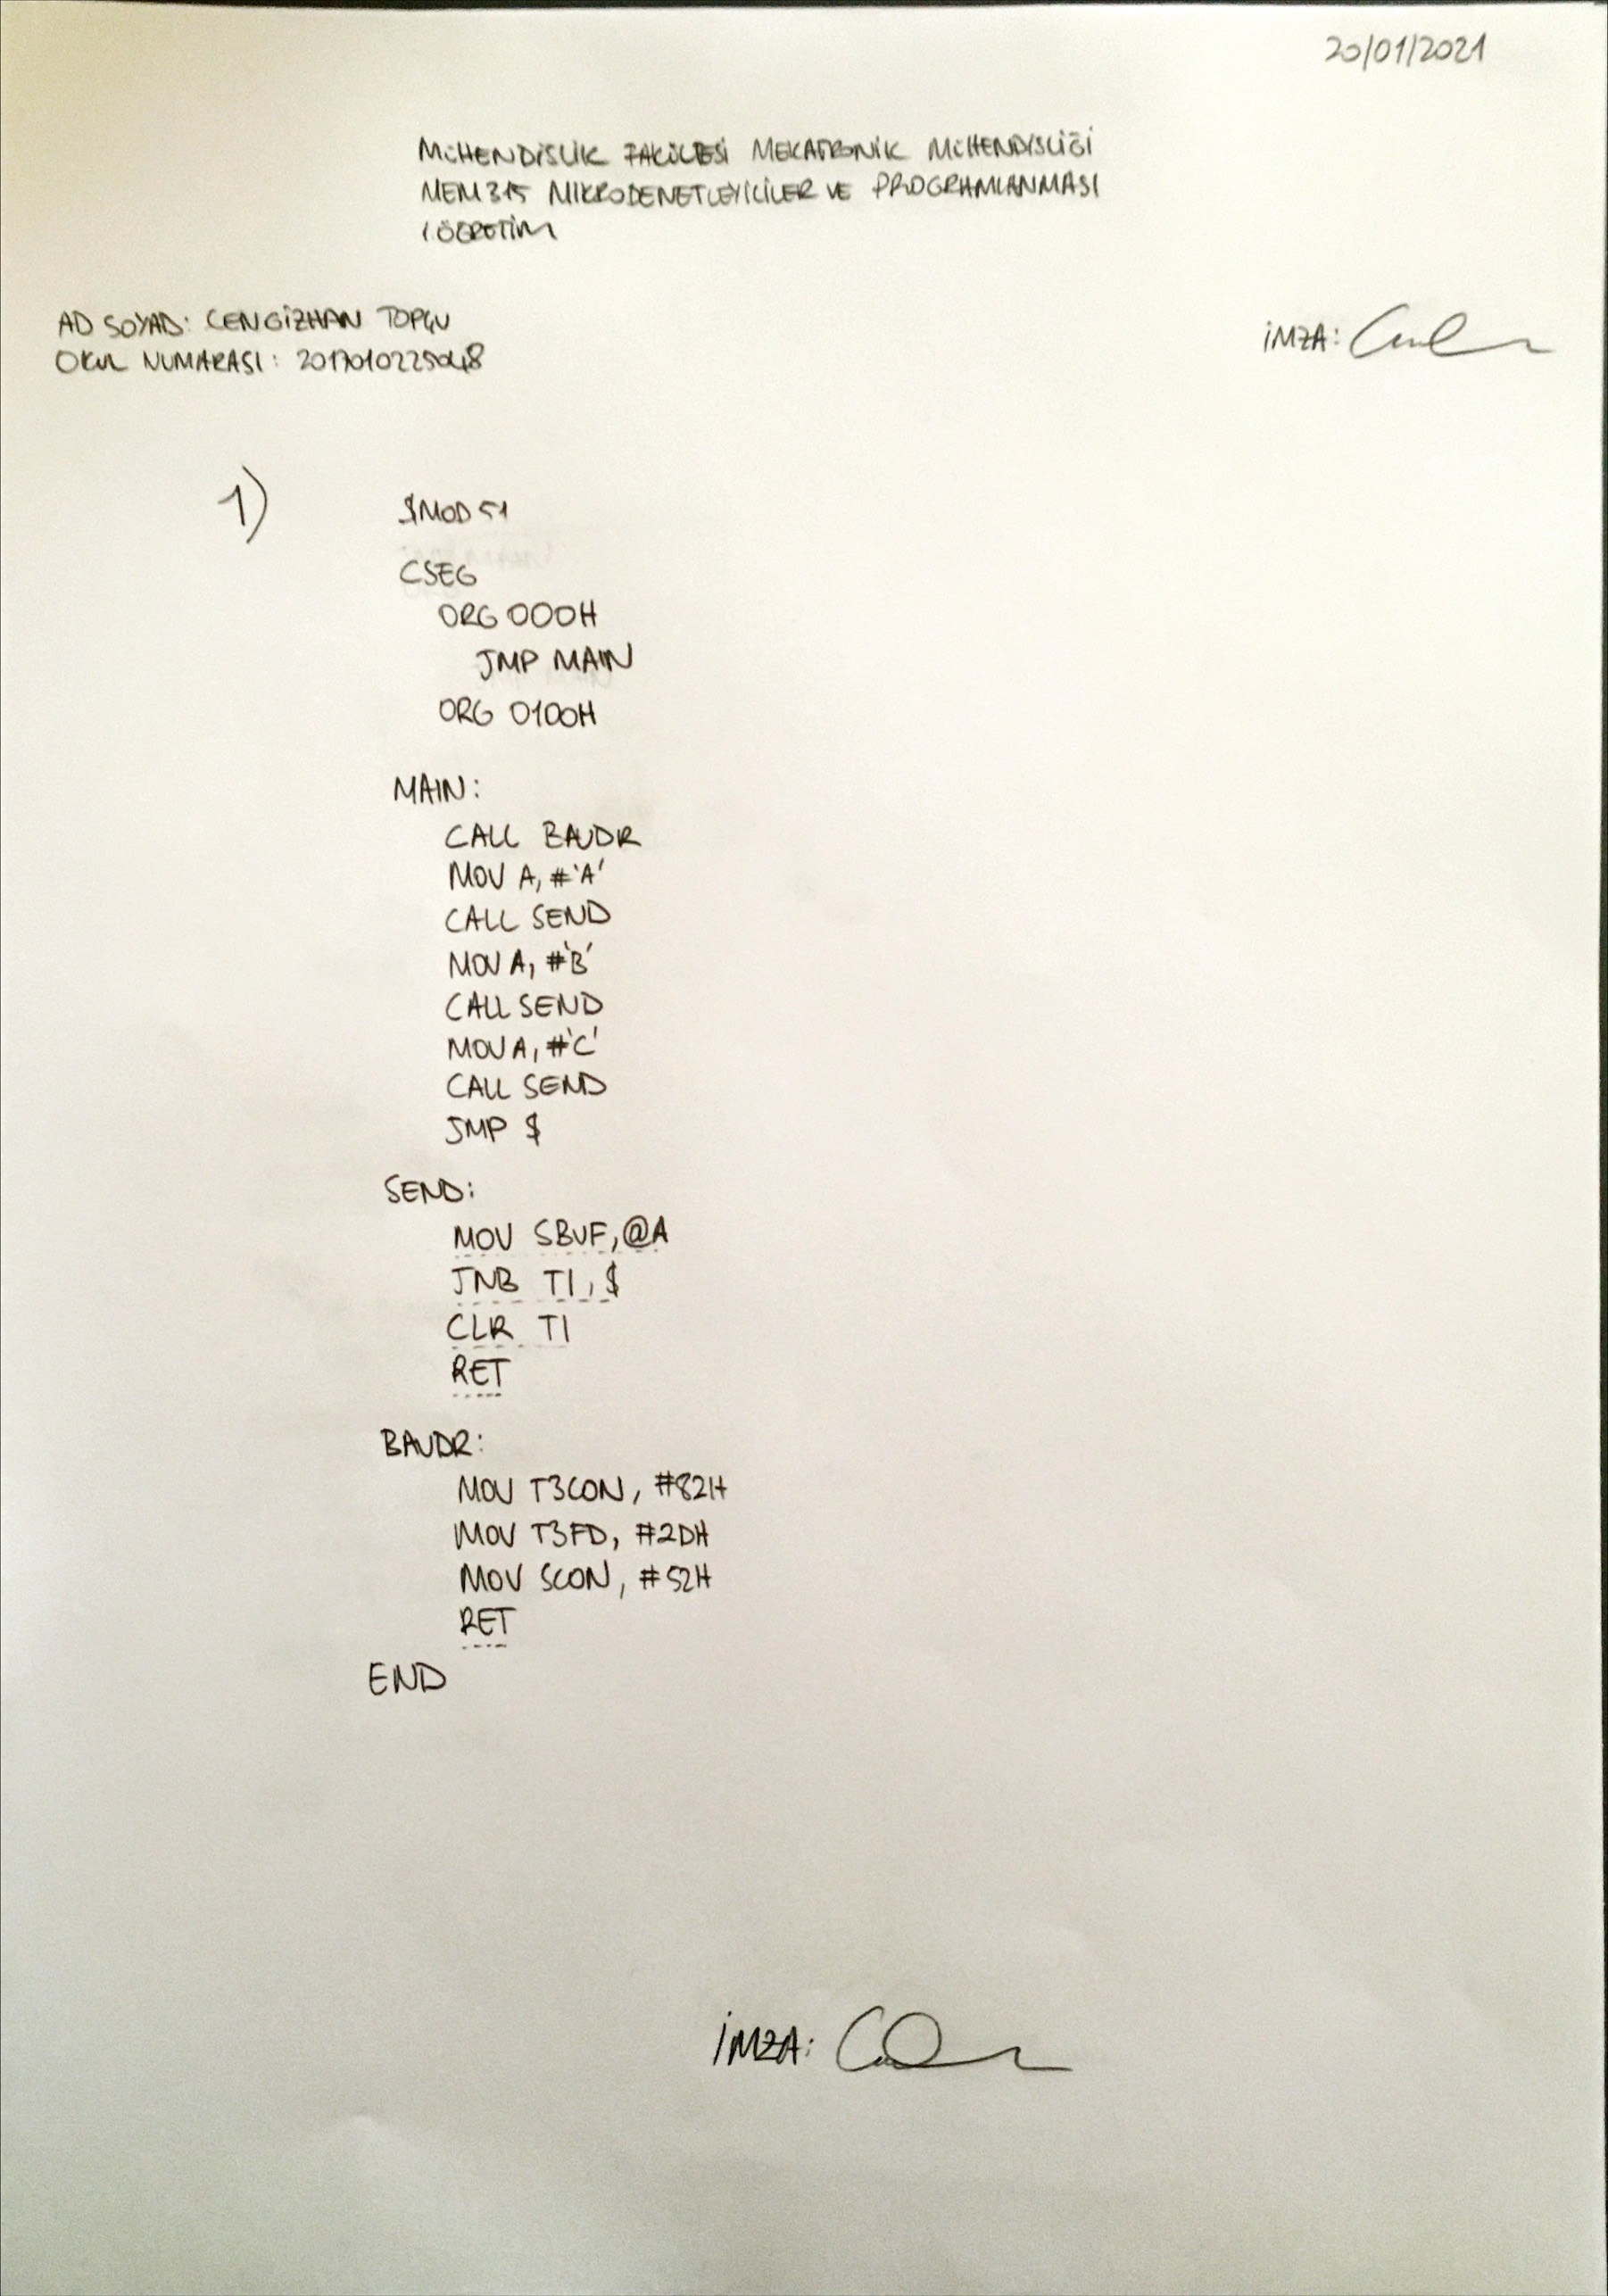 20/01/2021
MÜHENDİSLİK FAKÜLTESİ MEKATRONİK MÜHENDİSLİĞİ
MEM315 MİKRODENETLEYİCİLER VE PROGRAMLANMASI
1.ÖĞRETİM
AD SOYAD: CENGİZHAN TOPÇU
OKUL NUMARASI: 2017010225048
İMZA:
1)
$MOD51
CSEG
ORG 000H
JMP MAIN
ORG 0100H
MAIN:
CALL BAUDR
MOV A, #'A'
CALL SEND
MOV A, #'B'
CALL SEND
MOV A, #'C'
CALL SEND
JMP $
SEND:
MOV SBUF, @A
JNB TI, $
CLR TI
RET
BAUDR:
MOV T3CON, #82H
MOV T3FD, #2DH
MOV SCON, #52H
RET
END
İMZA: